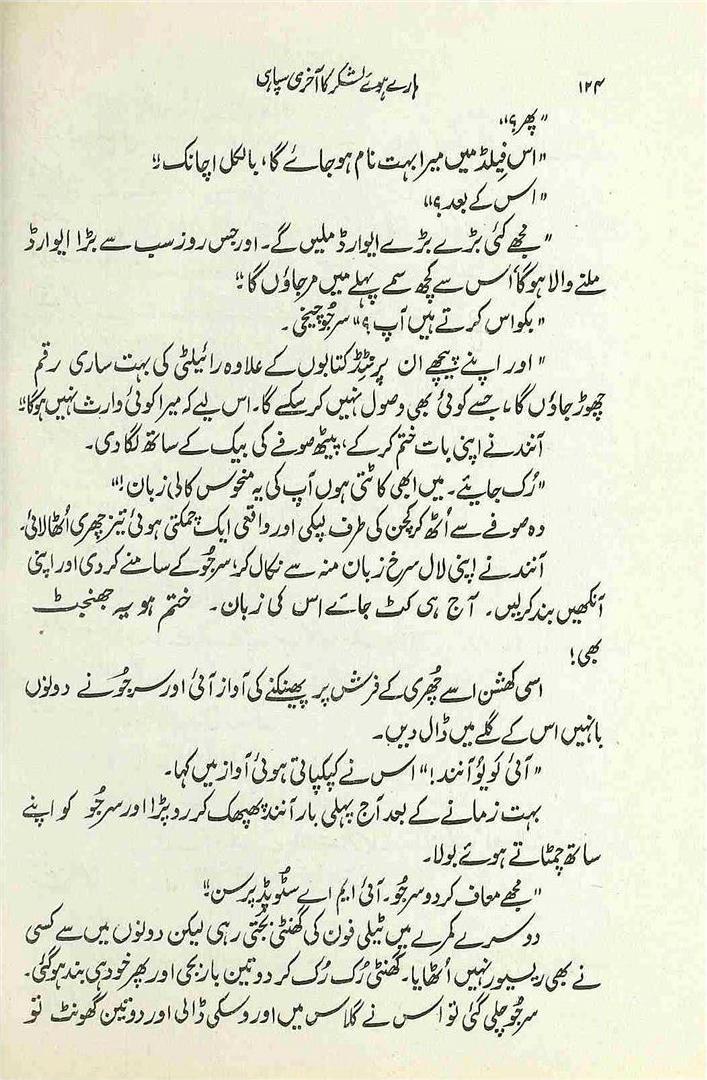 ۱۲۴ ہارے ہوئے لشکر کا آخری سپاہی
"پھر؟"
"اس فیلڈ میں میرا بہت نام ہو جائے گا، بالکل اچانک!"
"اس کے بعد؟"
"مجھے کئی بڑے بڑے ایوارڈ ملیں گے۔ اور جس روز سب سے بڑا ایوارڈ
ملنے والا ہوگا اُس سے کچھ سمے پہلے میں مر جاؤں گا۔"
"بکواس کرتے ہیں آپ؟" سرجُو چیخی۔
"اور اپنے پیچھے ان پرنٹڈ کتابوں کے علاوہ رائیلٹی کی بہت ساری رقم
چھوڑ جاؤں گا، جسے کوئی بھی وصول نہیں کر سکے گا۔ اس لیے کہ میرا کوئی وارث نہیں ہوگا۔"
آنند نے اپنی بات ختم کر کے، پیٹھ صوفے کی بیک کے ساتھ لگا دی۔
"رُک جایئے۔ میں ابھی کاٹتی ہوں آپ کی یہ منحوس کالی زبان!"
وہ صوفے سے اُٹھ کر کچن کی طرف لپکی اور واقعی ایک چمکتی ہوئی تیز چھری اُٹھا لائی۔
آنند نے اپنی لال سرخ زبان منہ سے نکال کر، سرجُو کے سامنے کر دی اور اپنی
آنکھیں بند کر لیں۔ آج ہی کٹ جائے اس کی زبان۔ ختم ہو یہ جھنجٹ
بھی!
اسی کھشن اسے چُھری کے فرش پر پھینکنے کی آواز آئی اور سرجُو نے دونوں
بانہیں اس کے گلے میں ڈال دیں۔
"آئی لَو یُو آنند!" اس نے کپکپاتی ہوئی آواز میں کہا۔
بہت زمانے کے بعد آج پہلی بار آنند پھپھک کر رو پڑا اور سرجُو کو اپنے
ساتھ چمٹاتے ہوئے بولا۔
"مجھے معاف کر دو سرجُو۔ آئی ایم اے سٹُوپڈ پرسن!"
دوسرے کمرے میں ٹیلی فون کی گھنٹی بجتی رہی لیکن دونوں میں سے کسی
نے بھی ریسیور نہیں اُٹھایا۔ گھنٹی رُک رُک کر دو تین بار بجی اور پھر خود ہی بند ہو گئی۔
سرجُو چلی گئی تو اس نے گلاس میں اور وسکی ڈالی اور دو تین گھونٹ تو